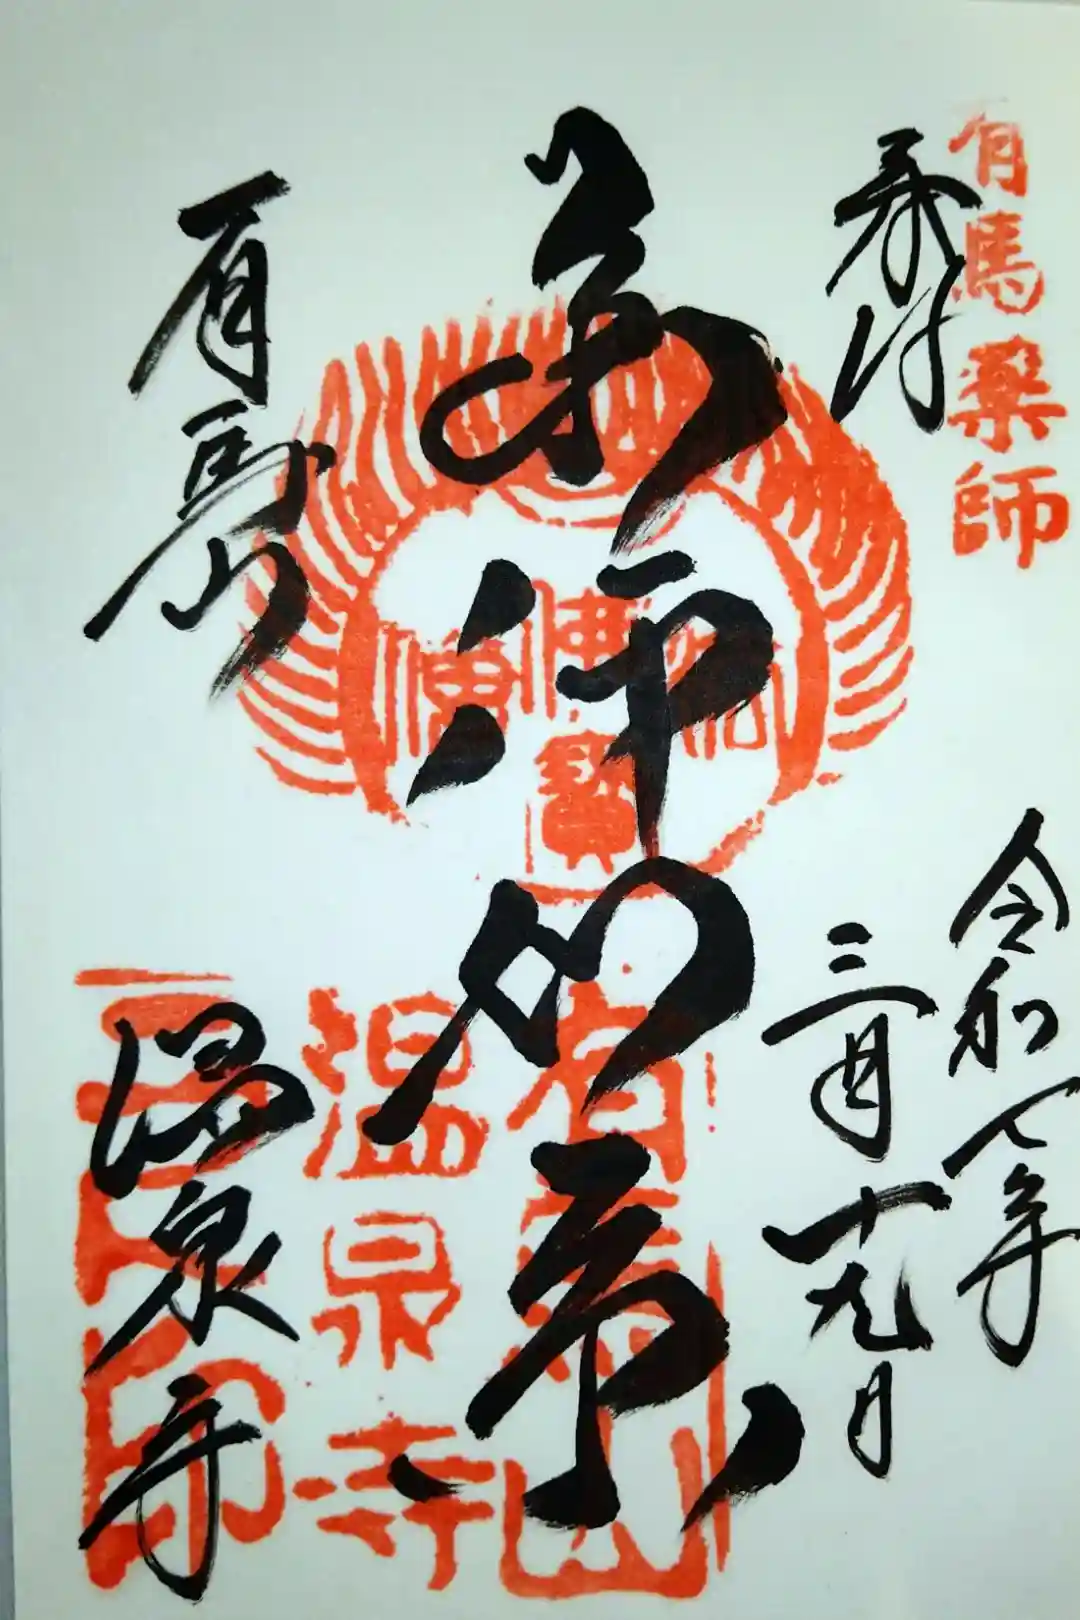 有馬薬師
奉拝
令和七年
三月十九日
薬師如来
佛
寶
僧
法
有馬山
温泉寺
有馬山
温泉寺